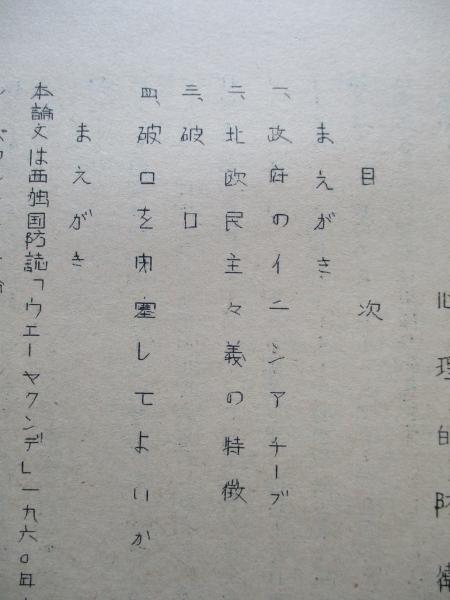 心理的防衛
目次
まえがき
一、政府のイニシアチーブ
二、北欧民主々義の特徴
三、破口
四、破口を閉塞してよいか
まえがき
本論文は西独国防誌「ウエーヤクンデ」一九六〇年